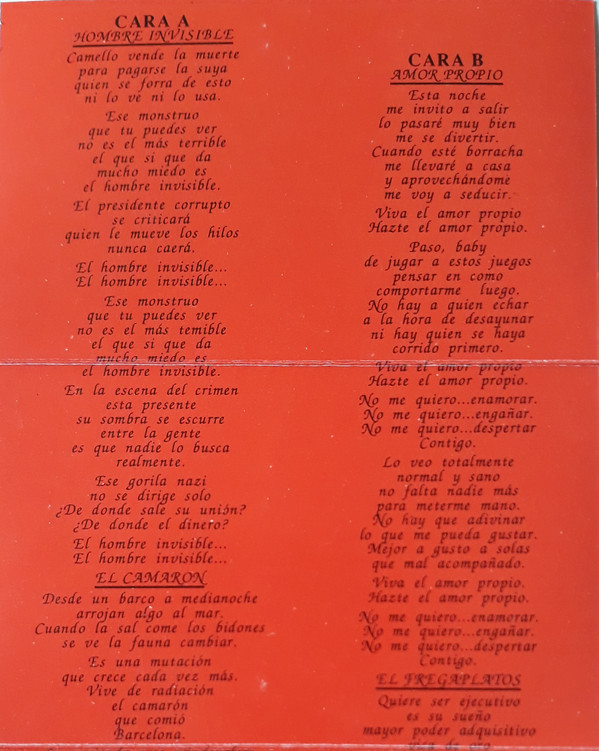 CARA A
HOMBRE INVISIBLE
Camello vende la muerte
para pagarse la suya
quien se forra de esto
ni lo ve ni lo usa.
Ese monstruo
que tu puedes ver
no es el más terrible
el que si que da
mucho miedo es
el hombre invisible.
El presidente corrupto
se criticará
quien le mueve los hilos
nunca caerá.
El hombre invisible...
El hombre invisible...
Ese monstruo
que tu puedes ver
no es el más temible
el que si que da
mucho miedo es
el hombre invisible.
En la escena del crimen
esta presente
su sombra se escurre
entre la gente
es que nadie lo busca
realmente.
Ese gorila nazi
no se dirige solo
¿De donde sale su unión?
¿De donde el dinero?
El hombre invisible...
El hombre invisible...
EL CAMARON
Desde un barco a medianoche
arrojan algo al mar.
Cuando la sal come los bidones
se ve la fauna cambiar.
Es una mutación
que crece cada vez más.
Vive de radiación
el camarón
que comió
Barcelona.
CARA B
AMOR PROPIO
Esta noche
me invito a salir
lo pasaré muy bien
me se divertir.
Cuando esté borracha
me llevaré a casa
y aprovechándome
me voy a seducir.
Viva el amor propio
Hazte el amor propio.
Paso, baby
de jugar a estos juegos
pensar en como
comportarme luego.
No hay a quien echar
a la hora de desayunar
ni hay quien se haya
corrido primero.
Viva el amor propio
Hazte el amor propio.
No me quiero...enamorar.
No me quiero...engañar.
No me quiero...despertar
Contigo.
Lo veo totalmente
normal y sano
no falta nadie más
para meterme mano.
No hay que adivinar
lo que me pueda gustar.
Mejor a gusto a solas
que mal acompañado.
Viva el amor propio.
Hazte el amor propio.
No me quiero...enamorar.
No me quiero...engañar.
No me quiero...despertar
Contigo.
EL FREGAPLATOS
Quiere ser ejecutivo
es su sueño
mayor poder adquisitivo